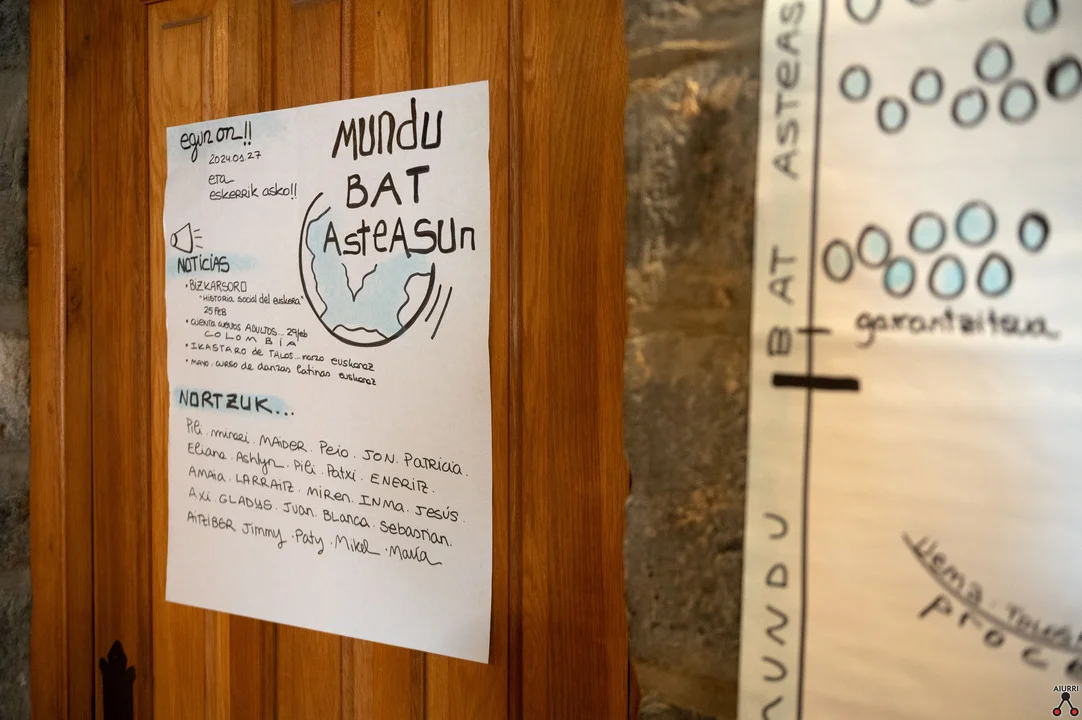 egun on!!
2024.01.27
eta
eskerrik asko!!
MUNdU
BAT
AsteASUn
NOTICIAS
• BIZKARSORO
"HISTORIA social del euskera"
25 FEB
• CUENTA CUENTOS ADULTOS... 29feb
COLOMBIA
• IKASTARO de TALOS... marzo euskaraz
• MAYO. curso de danzas latinas euskaraz
NORTZUK...
Pili. mirari. MAIDER. Peio. JON. Patricia.
Eliana. Ashlyn. Pili. Patxi. ENERITZ.
AMAIA. LARRAITZ. miren. INMA. JESÚS.
Axi. GLADYS. Juan. Blanca. Sebastian.
AITZIBER Jimmy. Paty. Mikel. María
MUNDU BAT ASTEAS
garantzitsua
Uema. TALOS
proce
AIURRI